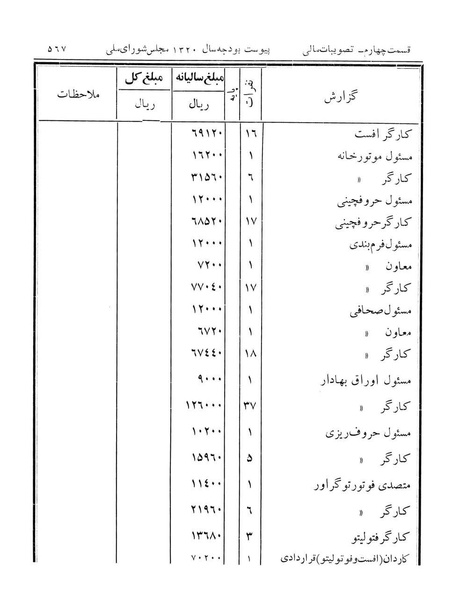 قسمت چهارم - تصویبات مالی پیوست بودجه سال ۱۳۲۰ مجلس شورای ملی ۵۶۷
گزارش نفرات پایه مبلغ سالیانه ریال مبلغ کل ریال ملاحظات
کارگر افست ۱۶ ۶۹۱۲۰
مسئول موتورخانه ۱ ۱۶۲۰۰
کارگر » ۶ ۳۱۵۶۰
مسئول حروفچینی ۱ ۱۲۰۰۰
کارگر حروفچینی ۱۷ ۶۸۵۲۰
مسئول فرم‌بندی ۱ ۱۲۰۰۰
معاون » ۱ ۷۲۰۰
کارگر » ۱۷ ۷۷۰٤۰
مسئول صحافی ۱ ۱۲۰۰۰
معاون » ۱ ۶۷۲۰
کارگر » ۱۸ ۶۷٤٤۰
مسئول اوراق بهادار ۱ ۹۰۰۰
کارگر » ۳۷ ۱۲۶۰۰۰
مسئول حروف‌ریزی ۱ ۱۰۲۰۰
کارگر » ۵ ۱۵۹۶۰
متصدی فوتورتوگراور ۱ ۱۱٤۰۰
کارگر » ۶ ۲۱۹۶۰
کارگر فتولیتو ۳ ۱۳۶۸۰
کاردان (افست و فوتولیتو) قراردادی ۱ ۷۰۲۰۰